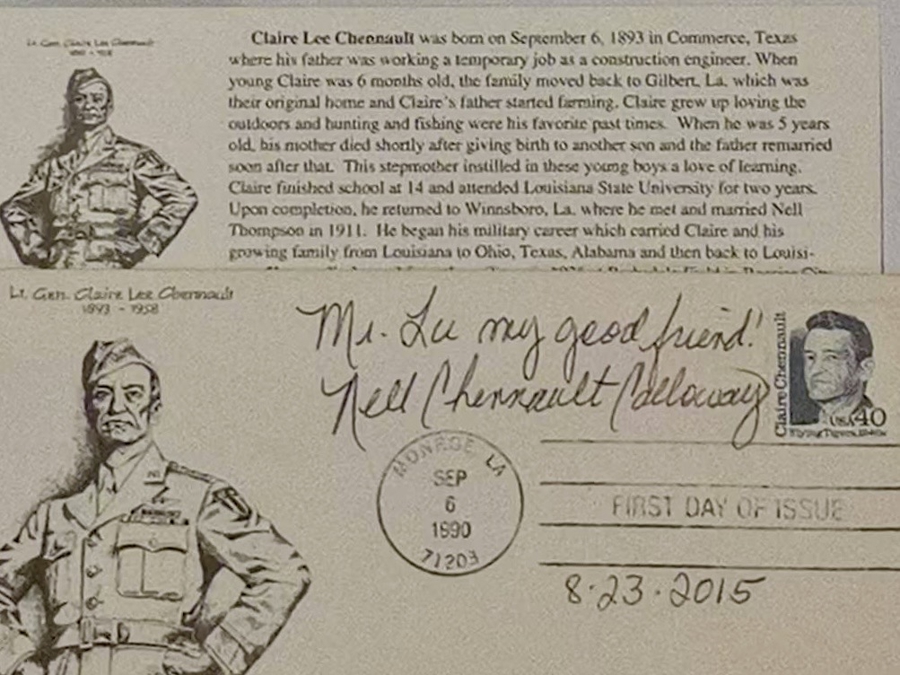 Lt. Gen. Claire Lee Chennault
1893 - 1958
Claire Lee Chennault was born on September 6, 1893 in Commerce, Texas
where his father was working a temporary job as a construction engineer. When
young Claire was 6 months old, the family moved back to Gilbert, La. which was
their original home and Claire's father started farming. Claire grew up loving the
outdoors and hunting and fishing were his favorite past times. When he was 5 years
old, his mother died shortly after giving birth to another son and the father remarried
soon after that. This stepmother instilled in these young boys a love of learning.
Claire finished school at 14 and attended Louisiana State University for two years.
Upon completion, he returned to Winnsboro, La. where he met and married Nell
Thompson in 1911. He began his military career which carried Claire and his
growing family from Louisiana to Ohio, Texas, Alabama and then back to Louisi-
Lt. Gen. Claire Lee Chennault
1893 - 1958
Mr. Lu my good friend!
Nell Chennault Calloway
Claire Chennault
USA 40
Flying Tigers, 1940s
MONROE, LA
SEP
6
1990
71203
FIRST DAY OF ISSUE
8·23·2015